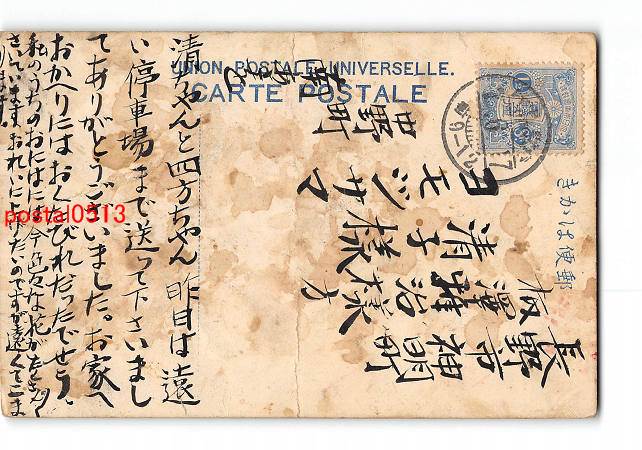 UNION POSTALE UNIVERSELLE.
CARTE POSTALE
きかは便郵
長野市神明町
清子様
ヨモジサマ
中野町
清ちゃんと四方ちゃん昨日は遠
い停車場まで送って下さいまし
てありがとうございました。お家へ
おかへりにはおくたびれだったでせう。
私のうちのおにはには今色々な花がたくさん
さいています。おれいに上げたいのですが遠くてこま
ります。
postal0513